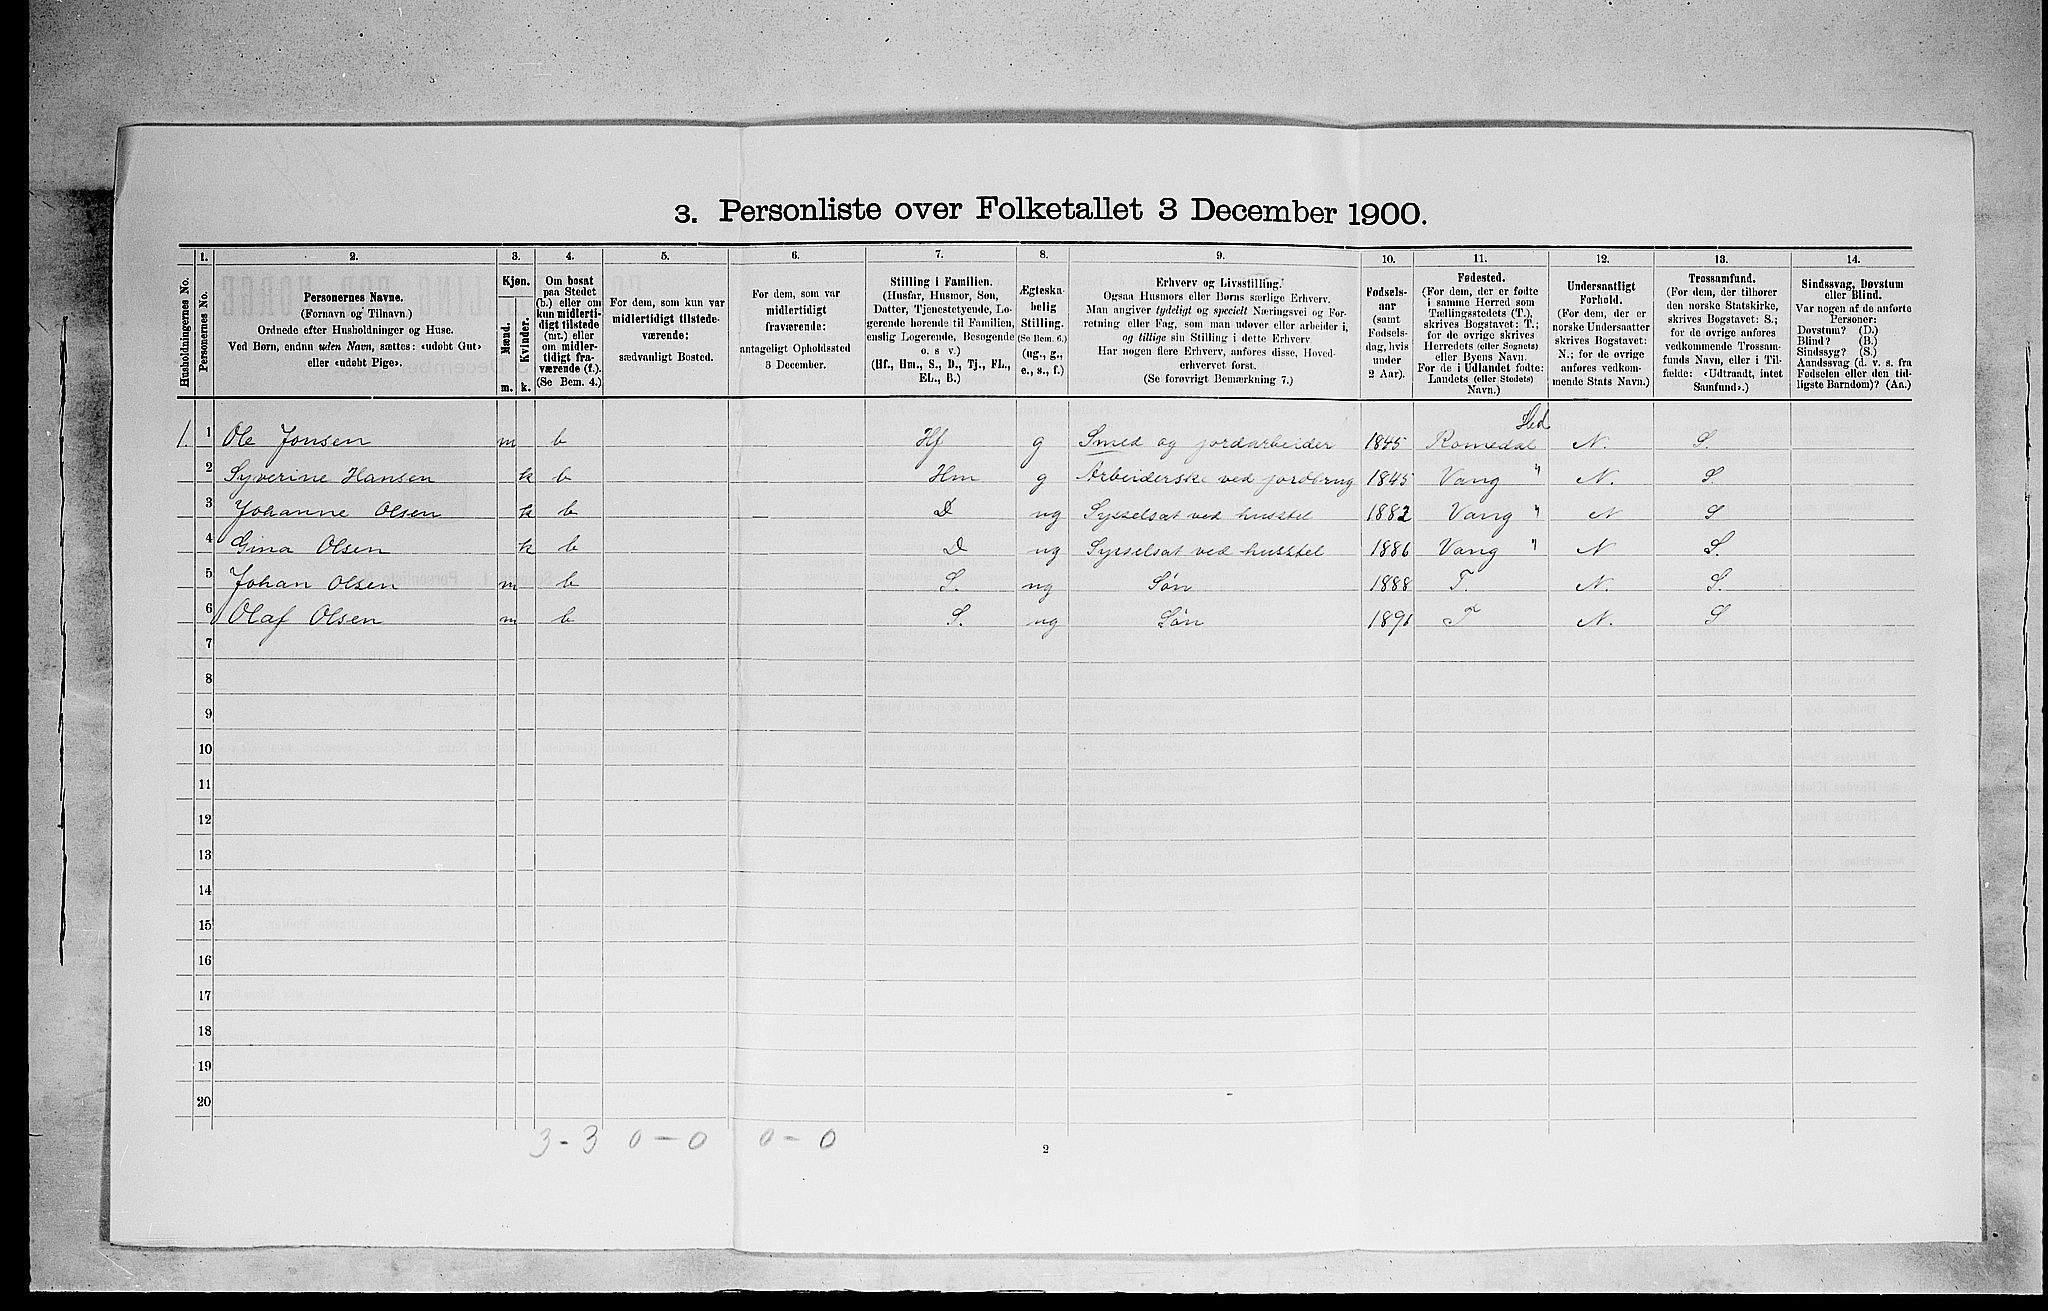 3. Personliste over Folketallet 3 December 1900.
Husholdningernes No.
1.
Personernes No.
2.
Personernes Navne.
(Fornavn og Tilnavn.)
Ordnede efter Husholdninger og Huse.
Ved Børn, endnu uden Navn, sættes: «udøbt Gut»
eller «udøbt Pige».
3.
Kjøn.
Mænd.
m.
Kvinder.
k.
4.
Om bosat
paa Stedet
(b.) eller om
kun midlerti-
digt tilstede
(mt.) eller
om midler-
tidigt fra-
værende (f.).
(Se Bem. 4.)
5.
For dem, som kun var
midlertidigt tilstede-
værende:
sædvanligt Bosted.
6.
For dem, som var
midlertidigt
fraværende:
antageligt Opholdssted
3 December.
7.
Stilling i Familien.
(Husfar, Husmor, Søn,
Datter, Tjenestetyende, Lo-
gerende hørende til Familien,
enslig Logerende, Besøgende
o. s v.)
(Hf., Hm., S., D., Tj., FL.,
EL., B.)
8.
Ægteska-
belig
Stilling.
(Se Bem. 6.)
(ug., g.,
e., s., f.)
9.
Erhverv og Livsstilling.
Ogsaa Husmors eller Børns særlige Erhverv.
Man angiver tydeligt og specielt Næringsvei og For-
retning eller Fag, som man udøver eller arbeider i,
og tillige sin Stilling i dette Erhverv.
Har nogen flere Erhverv, anføres disse, Hoved-
erhvervet først.
(Se forøvrigt Bemærkning 7.)
10.
Fødsels-
aar
(samt
Fødsels-
dag, hvis
under
2 Aar).
11.
Fødested.
(For dem, der er fødte
i samme Herred som
Tællingsstedets (T.),
skrives Bogstavet: T.;
for de øvrige skrives
Herredets (eller Sognets)
eller Byens Navn.
For de i Udlandet fødte:
Landets (eller Stedets)
Navn.)
12.
Undersaatligt
Forhold.
(For dem, der er
norske Undersaatter
skrives Bogstavet:
N.; for de øvrige
anføres vedkom-
mende Stats Navn.)
13.
Trossamfund.
(For dem, der tilhører
den norske Statskirke,
skrives Bogstavet: S.;
for de øvrige anføres
vedkommende Trossam-
funds Navn, eller i Til-
fælde: «Udtraadt, intet
Samfund».)
14.
Sindssvag, Døvstum
eller Blind.
Var nogen af de anførte
Personer:
Døvstum? (D.)
Blind? (B.)
Sindssyg? (S.)
Aandssvag (d. v. s. fra
Fødselen eller den tid-
ligste Barndom)? (Aa.)
1. 1 Ole Jonsen m b Hf g Smed og jordarbeider 1845 Romedal Hed N. S.
2 Syverine Hansen k b Hm g Arbeiderske ved jordbrug 1845 Vang " N. S.
3 Johanne Olsen k b — D ug Sysselsat ved husstel 1882 Vang " N S
4 Gina Olsen k b D ug Sysselsat ved husstel 1886 Vang " N S.
5 Johan Olsen m b S. ug Søn 1888 T. N. S.
6 Olaf Olsen m b S. ug Søn 1891 T N. S
7
8
9
10
11
12
13
14
15
16
17
18
19
20
3-3 0-0 0-0
2